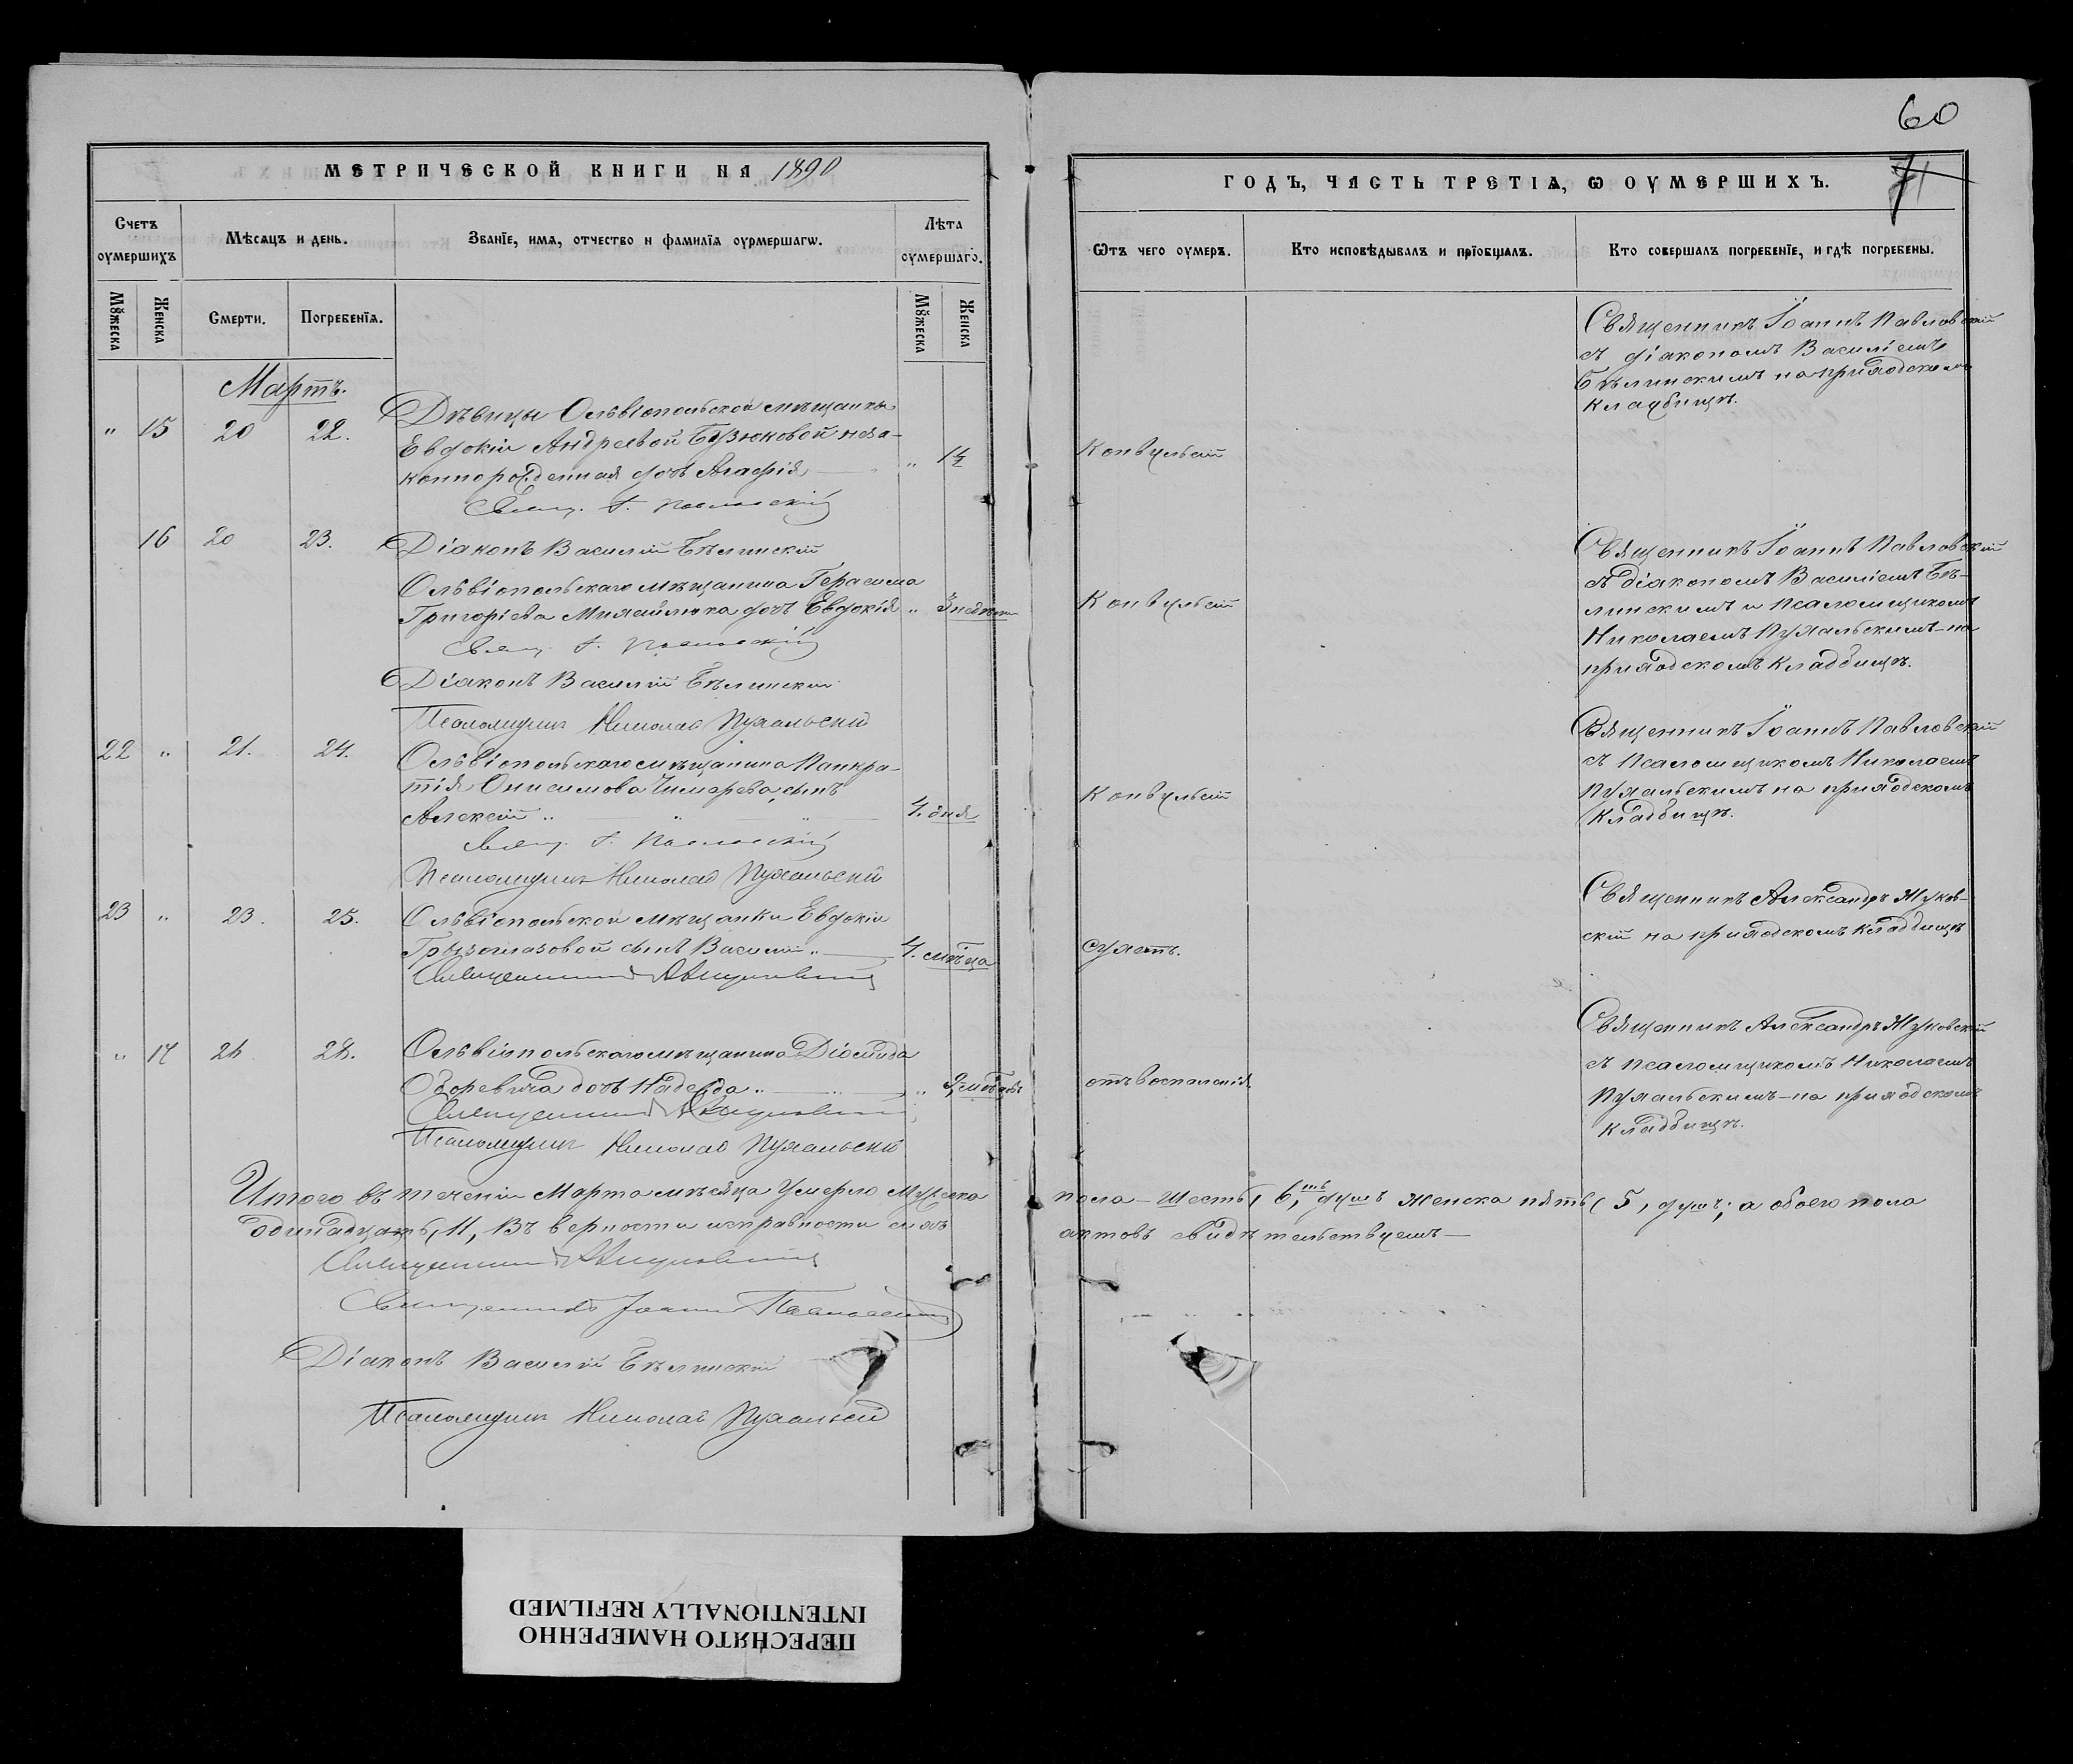 60
71
МЕТРИЧЕСКОЙ КНИГИ НА 1890
ГОДЪ, ЧАСТЬ ТРЕТІѦ, Ѡ ОУМЕРШИХЪ.
Счетъ оумершихъ
Мѣсяцъ и день.
Званїе, имѧ, отчество и фамилїѧ оурмершагѡ.
Лѣта оумершаго.
Ѿтъ чего оумеръ.
Кто исповѣдывалъ и прїобщалъ.
Кто совершалъ погребенїе, и гдѣ погребены.
Мꙋжеска
Женска
Смерти.
Погребенїѧ.
Мꙋжеска
Женска
Мартъ.
„ 15 20 22.
Дѣвицы Ольвіопольской мѣщанки
Евдокіи Андреевой неза-
коннорожденная дочь Агафія „ 1½
Свящ. І. Павловскій
Діаконъ Василій Бѣлинскій
Конвульсій
Священникъ Іоаннъ Павловскій
съ діакономъ Василіемъ
Бѣлинскимъ на приходскомъ
кладбищѣ.
16 20 23.
Ольвіопольскаго мѣщанина Герасима
Григоріева дочь Евдокія „ 3 недѣли
Свящ. І. Павловскій
Діаконъ Василій Бѣлинскій
Псаломщикъ Николай Пухальскій
Конвульсій
Священникъ Іоаннъ Павловскій
съ діакономъ Василіемъ Бѣ-
линскимъ и псаломщикомъ
Николаемъ Пухальскимъ - на
приходскомъ кладбищѣ.
22 „ 21. 24.
Ольвіопольскаго мѣщанина Панкра-
тія Онисимова сынъ
Алексій „ 4. дня
Свящ. І. Павловскій
Псаломщикъ Николай Пухальскій
Конвульсій
Священникъ Іоаннъ Павловскій
съ псаломщикомъ Николаемъ
Пухальскимъ на приходскомъ
кладбищѣ.
23 „ 23. 25.
Ольвіопольской мѣщанки Евдокіи
Грызоглазовой сынъ Василій „ 4.
Священникъ
Сухоть.
Священникъ Александръ Жуков-
скій на приходскомъ кладбищѣ
„ 17 26 28.
Ольвіопольскаго мѣщанина Діомида
дочь Надежда „
Священникъ
Псаломщикъ Николай Пухальскій
отъ воспаленія
Священникъ Александръ Жуковскій
съ псаломщикомъ Николаемъ
Пухальскимъ - на приходскомъ
кладбищѣ.
Итого въ теченіи Марта мѣсяца умерло мужеска пола - шесть, 6, душъ женска пять, 5, душъ; а обоего пола
одинадцать, 11, Въ вѣрности и исправности сихъ актовъ свидѣтельствуемъ —
Священникъ
Священникъ Іоаннъ Павловскій
Діаконъ Василій Бѣлинскій
Псаломщикъ Николай Пухальскій
ПЕРЕСНЯТО НАМЕРЕННО
INTENTIONALLY REFILMED